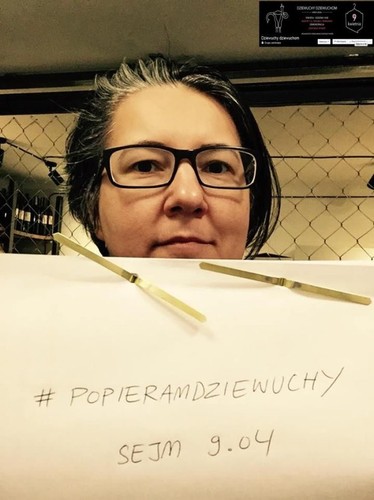 DZIEWUCHY DZIEWUCHOM
9
Dziewuchy dziewuchom
# POPIERAMDZIEWUCHY
SEJM 9.04